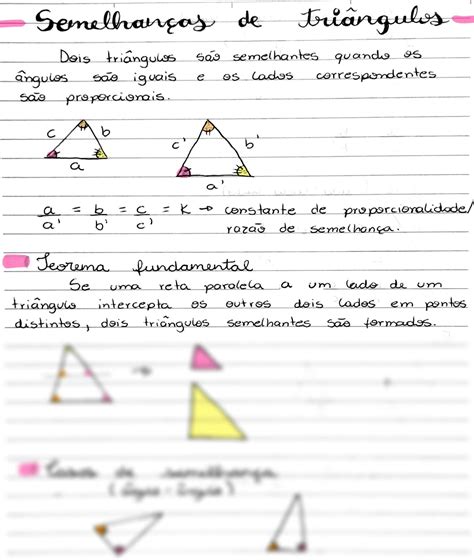 Semelhanças de triângulos
Dois triângulos são semelhantes quando os
ângulos são iguais e os lados correspondentes
são proporcionais.
c b c' b'
a a'
a/a' = b/b' = c/c' = K → constante de proporcionalidade/
razão de semelhança.
Teorema fundamental
Se uma reta paralela a um lado de um
triângulo intercepta os outros dois lados em pontos
distintos, dois triângulos semelhantes são formados.